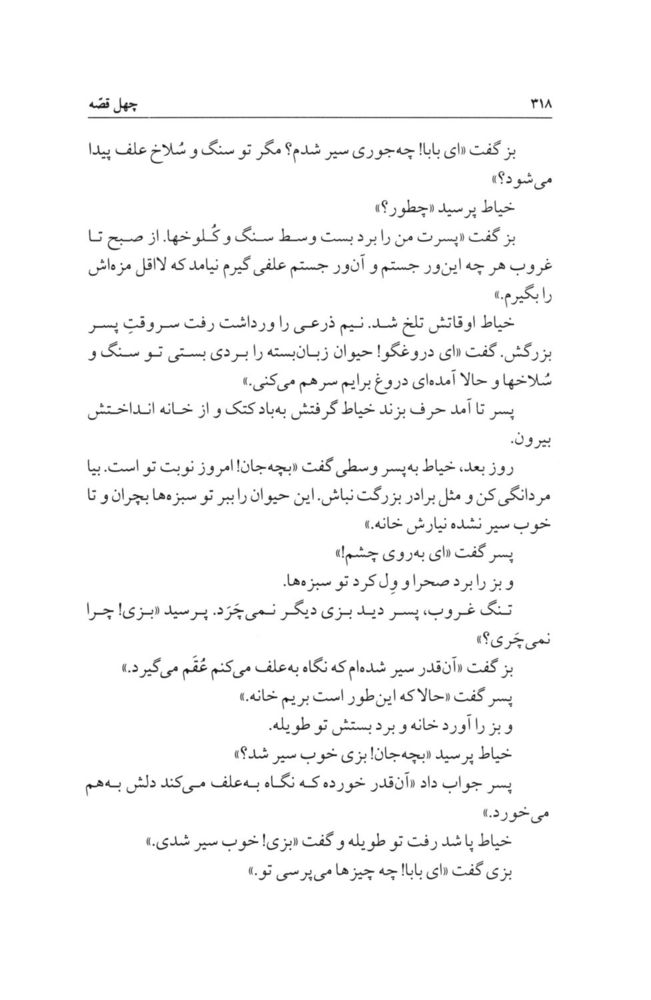 ۳۱۸
چهل قصّه
بز گفت «ای بابا! چه‌جوری سیر شدم؟ مگر تو سنگ و سُلاخ علف پیدا
می‌شود؟»
خیاط پرسید «چطور؟»
بز گفت «پسرت من را برد بست وسط سنگ و کُلوخها. از صبح تا
غروب هر چه این‌ور جستم و آن‌ور جستم علفی گیرم نیامد که لااقل مزه‌اش
را بگیرم.»
خیاط اوقاتش تلخ شد. نیم ذرعی را ورداشت رفت سروقتِ پسر
بزرگش. گفت «ای دروغگو! حیوان زبان‌بسته را بردی بستی تو سنگ و
سُلاخها و حالا آمده‌ای دروغ برایم سرهم می‌کنی.»
پسر تا آمد حرف بزند خیاط گرفتش به‌باد کتک و از خانه انداختش
بیرون.
روز بعد، خیاط به‌پسر وسطی گفت «بچه‌جان! امروز نوبت تو است. بیا
مردانگی کن و مثل برادر بزرگت نباش. این حیوان را ببر تو سبزه‌ها بچران و تا
خوب سیر نشده نیارش خانه.»
پسر گفت «ای به‌روی چشم!»
و بز را برد صحرا و وِل کرد تو سبزه‌ها.
تنگ غروب، پسر دید بزی دیگر نمی‌چَرَد. پرسید «بزی! چرا
نمی‌چَری؟»
بز گفت «آن‌قدر سیر شده‌ام که نگاه به‌علف می‌کنم عُقَم می‌گیرد.»
پسر گفت «حالا که این‌طور است بریم خانه.»
و بز را آورد خانه و برد بستش تو طویله.
خیاط پرسید «بچه‌جان! بزی خوب سیر شد؟»
پسر جواب داد «آن‌قدر خورده که نگاه به‌علف می‌کند دلش به‌هم
می‌خورد.»
خیاط پا شد رفت تو طویله و گفت «بزی! خوب سیر شدی.»
بزی گفت «ای بابا! چه چیزها می‌پرسی تو.»